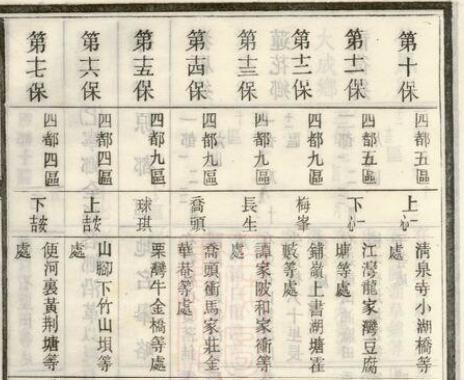 第十保
四都五區
上一心
清泉寺小湖橋等
處
第十一保
四都五區
下一心
江灣龍家灣豆腐
塘等處
第十二保
四都九區
梅峯
鋪嶺上書湖塘霍
等處
第十三保
四都九區
長生
譚家陂和家衝等
處
第十四保
四都九區
喬頭
喬頭衝馬家莊金
華菴等處
第十五保
四都九區
球琪
栗灣牛金橋等處
第十六保
四都四區
上
山腳下竹山垻等
處
第十七保
四都四區
下
便河裏黃荆塘等
處